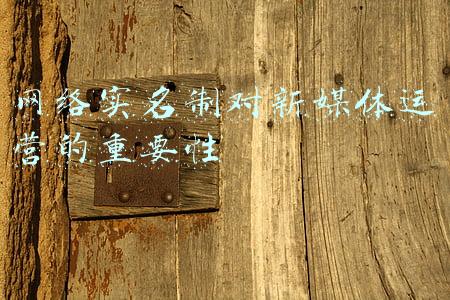 网络实名制对新媒体运
营的重要性